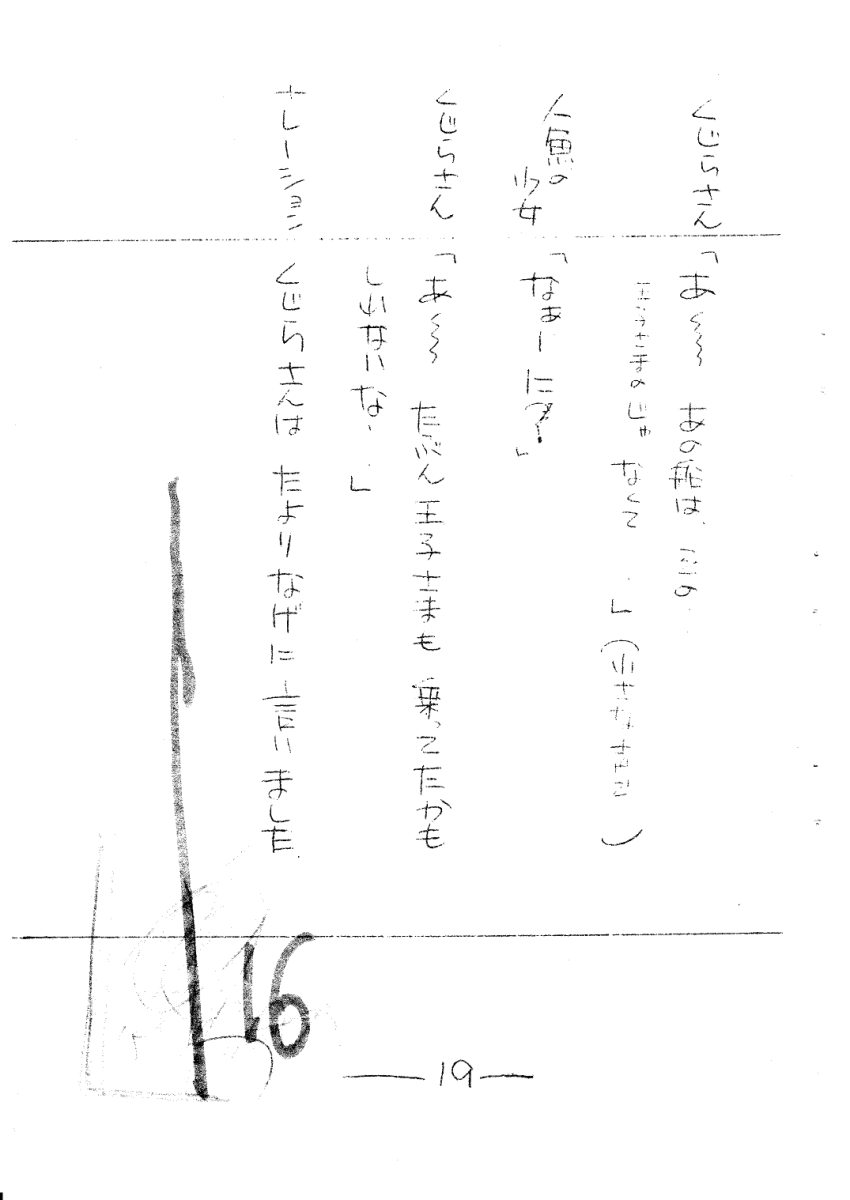 くじらさん「あ〜〜〜 あの船は、にもの
じゃなくて・」(
人魚の少女「なあーに?」
くじらさん「あ〜〜〜 たぶん王子さまも 乗ってたかも
しれないな・」
ナレーション くじらさんは たよりなげに 言いました。
16
—19—